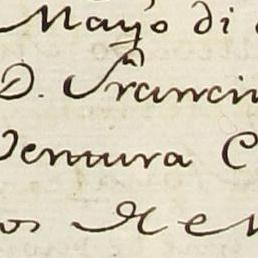 Mayo di
D. Fran
Ventura C
os